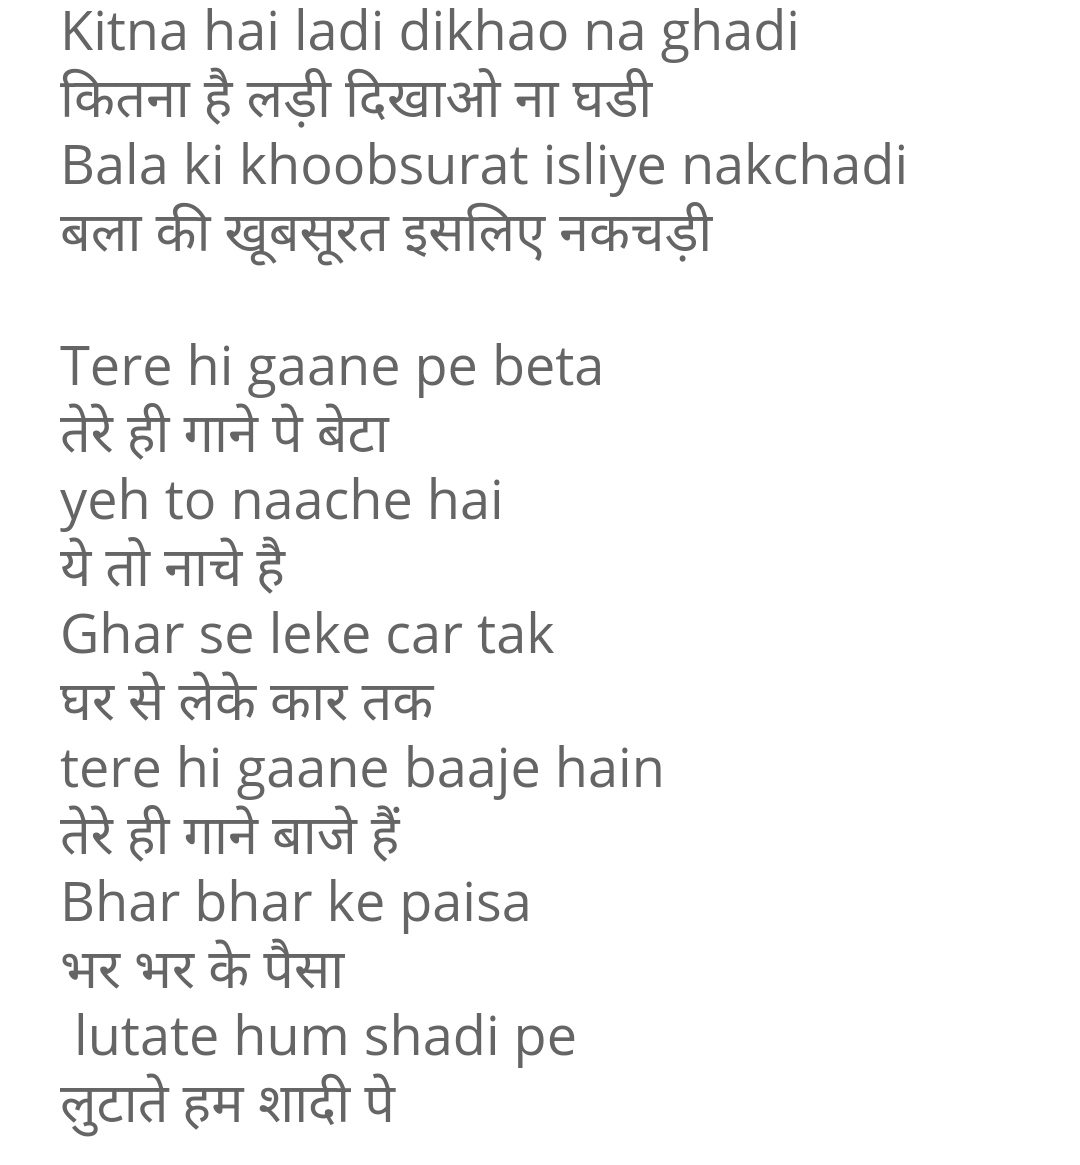 Kitna hai ladi dikhao na ghadi
कितना है लड़ी दिखाओ ना घडी
Bala ki khoobsurat isliye nakchadi
बला की खूबसूरत इसलिए नकचड़ी
Tere hi gaane pe beta
तेरे ही गाने पे बेटा
yeh to naache hai
ये तो नाचे है
Ghar se leke car tak
घर से लेके कार तक
tere hi gaane baaje hain
तेरे ही गाने बाजे हैं
Bhar bhar ke paisa
भर भर के पैसा
lutate hum shadi pe
लुटाते हम शादी पे